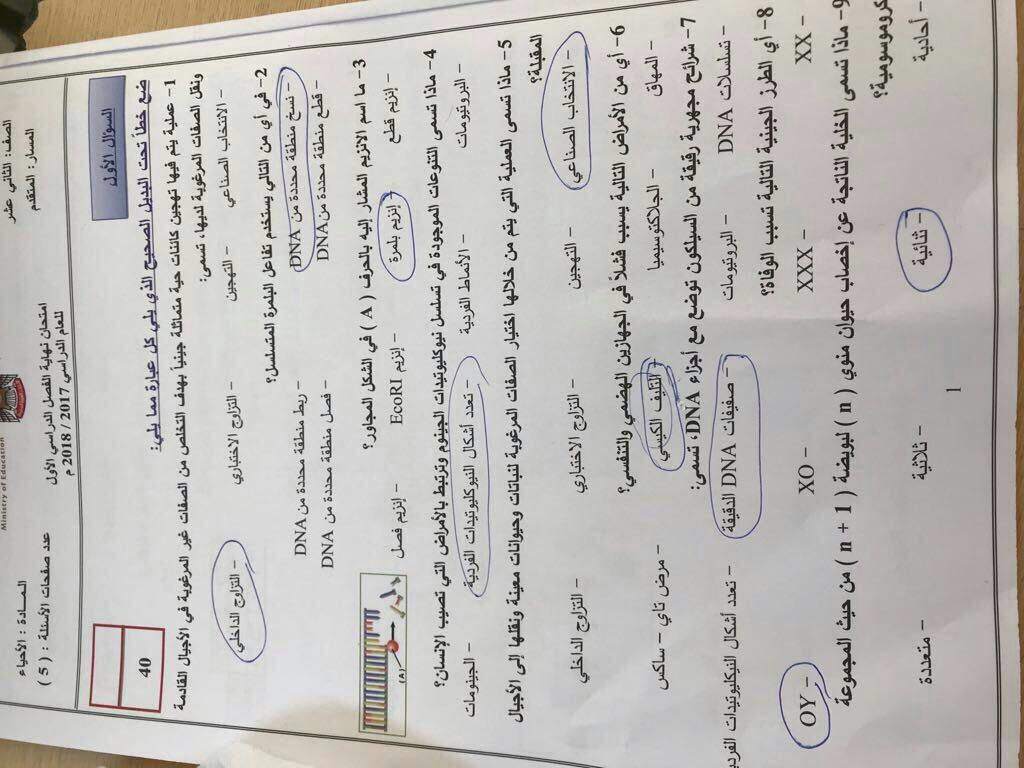 Ministry of Education
المسار: المتقدم
الصف: الثاني عشر
امتحان نهاية الفصل الدراسي الأول
للعام الدراسي 2017 / 2018 م
المادة : الأحياء
عدد صفحات الأسئلة : ( 5 )
السؤال الأول
40
ضع خطاً تحت البديل الصحيح الذي يلي كل عبارة مما يلي:
1- عملية يتم فيها تهجين كائنات حية متماثلة جينياً بهدف التخلص من الصفات غير المرغوبة في الأجيال القادمة
ونقل الصفات المرغوبة لديها، تسمى:
- الانتخاب الصناعي - التهجين - التزاوج الاختباري - التزاوج الداخلي
2- في أي من التالي يستخدم تفاعل البلمرة المتسلسل؟
- نسخ منطقة محددة من DNA - ربط منطقة محددة من DNA
- قطع منطقة محددة من DNA - فصل منطقة محددة من DNA
3- ما اسم الانزيم المشار إليه بالحرف ( A ) في الشكل المجاور؟
- إنزيم قطع - إنزيم بلمرة - إنزيم EcoRI - إنزيم فصل
(A)
4- ماذا تسمى التنوعات الموجودة في تسلسل نيوكليوتيدات الجينوم وترتبط بالأمراض التي تصيب الإنسان؟
- البروتيومات - الأنماط الفردية - تعدد أشكال النيوكليوتيدات الفردية - الجينومات
5- ماذا تسمى العملية التي يتم من خلالها اختيار الصفات المرغوبة لنباتات وحيوانات معينة ونقلها إلى الأجيال
المقبلة؟
- الانتخاب الصناعي - التهجين - التزاوج الاختباري - التزاوج الداخلي
6- أي من الأمراض التالية يسبب فشلاً في الجهازين الهضمي والتنفسي؟
- المهاق - الجلاكتوسيميا - التليف الكيسي - مرض تاي - ساكس
7- شرائح مجهرية رقيقة من السيلكون توضع مع أجزاء DNA، تسمى:
- تسلسلات DNA - البروتيومات - صفيفات DNA الدقيقة - تعدد أشكال النيكليوتيدات الفردية
8- أي الطرز الجينية التالية تسبب الوفاة؟
- XX - XXX - XO - OY
9- ماذا تسمى الخلية الناتجة عن إخصاب حيوان منوي ( n ) لبويضة ( n + 1 ) من حيث المجموعة
الكروموسومية؟
- أحادية - ثنائية - ثلاثية - متعددة
1